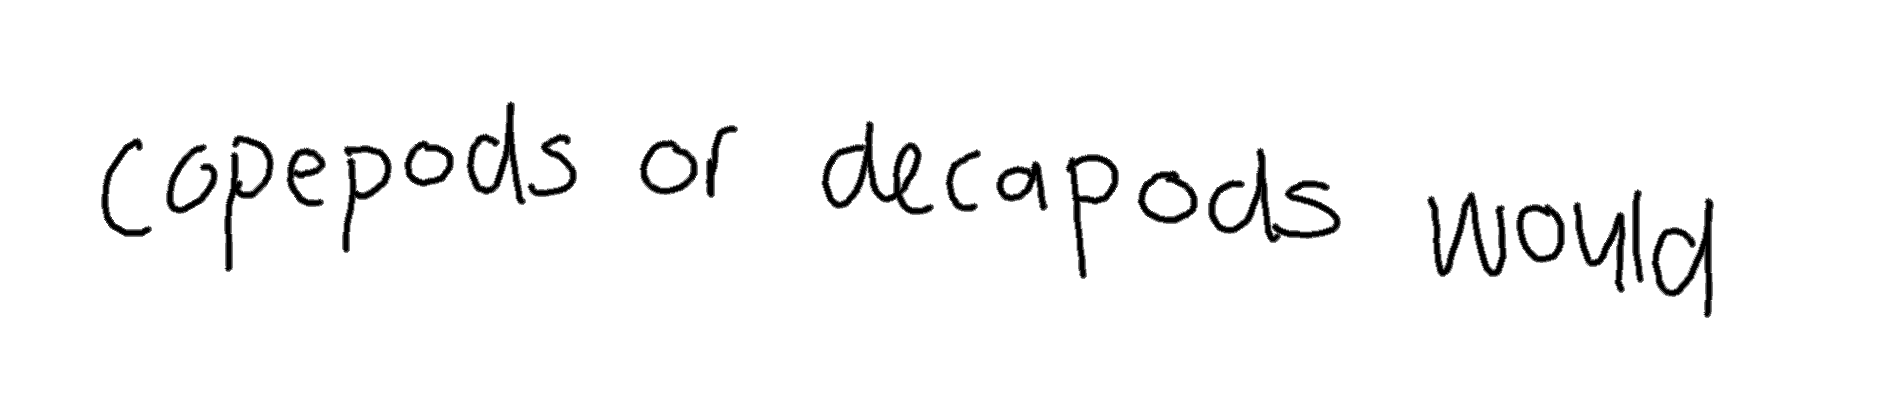 copepods or decapods would